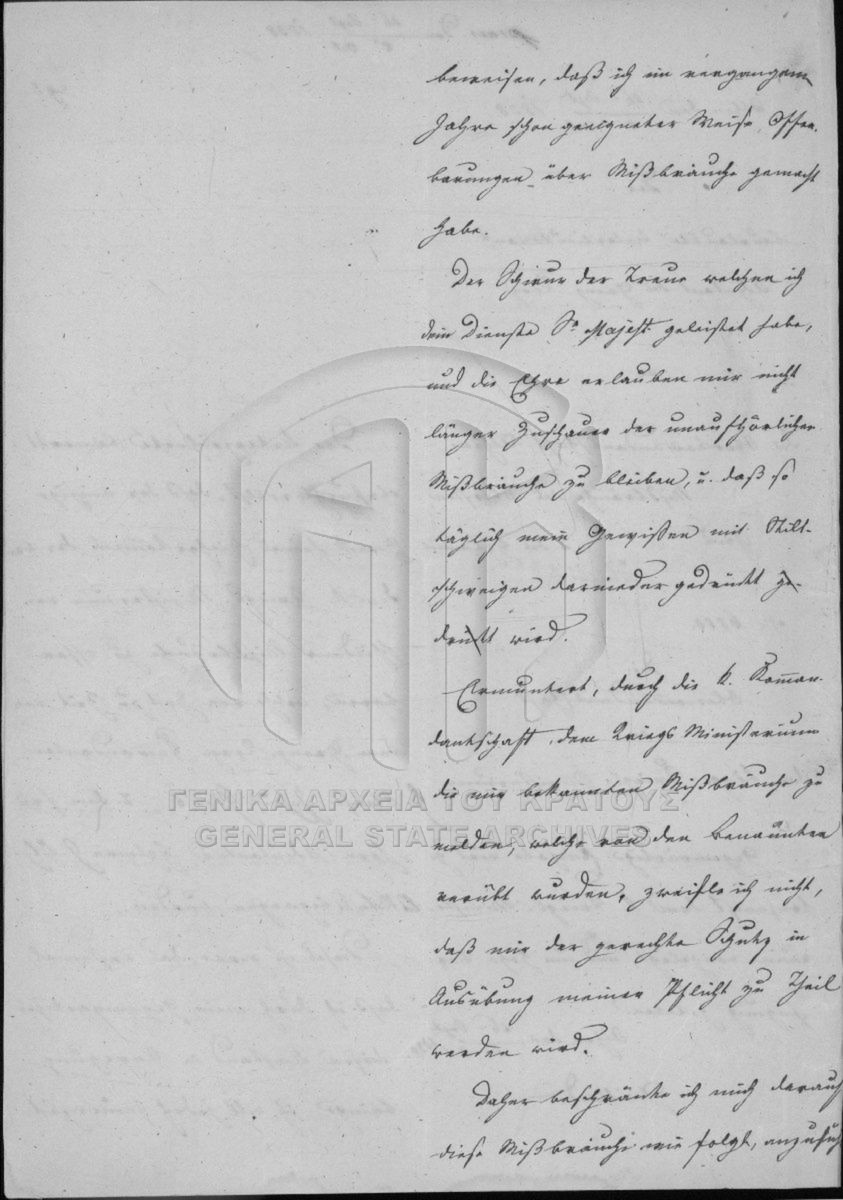 beweisen, daß ich im vergangenen
Jahre schon geeigneter Weise Offen-
barungen über Mißbräuche gemacht
habe.
Der Schwur der Treue welchen ich
dem Dienste Sr. Majest. geleistet habe,
und die Ehre erlauben mir nicht
länger Zuschauer der unaufhörlichen
Mißbräuche zu bleiben, u. daß so
täglich mein Gewißen mit Still-
schweigen darnieder gedrückt ge-
drückt wird.
Ermuntert, durch die k. Komman-
dantschaft, dem Kriegs Ministerium
die mir bekannten Mißbräuche zu
melden, welche von den Benannten
verübt wurden, zweifle ich nicht,
daß mir der gerechte Schutz in
Ausübung meiner Pflicht zu Theil
werden wird.
Daher beschränke ich mich darauf
diese Mißbräuche wie folgt, anzufüh
ΓΕΝΙΚΑ ΑΡΧΕΙΑ ΤΟΥ ΚΡΑΤΟΥΣ
GENERAL STATE ARCHIVES